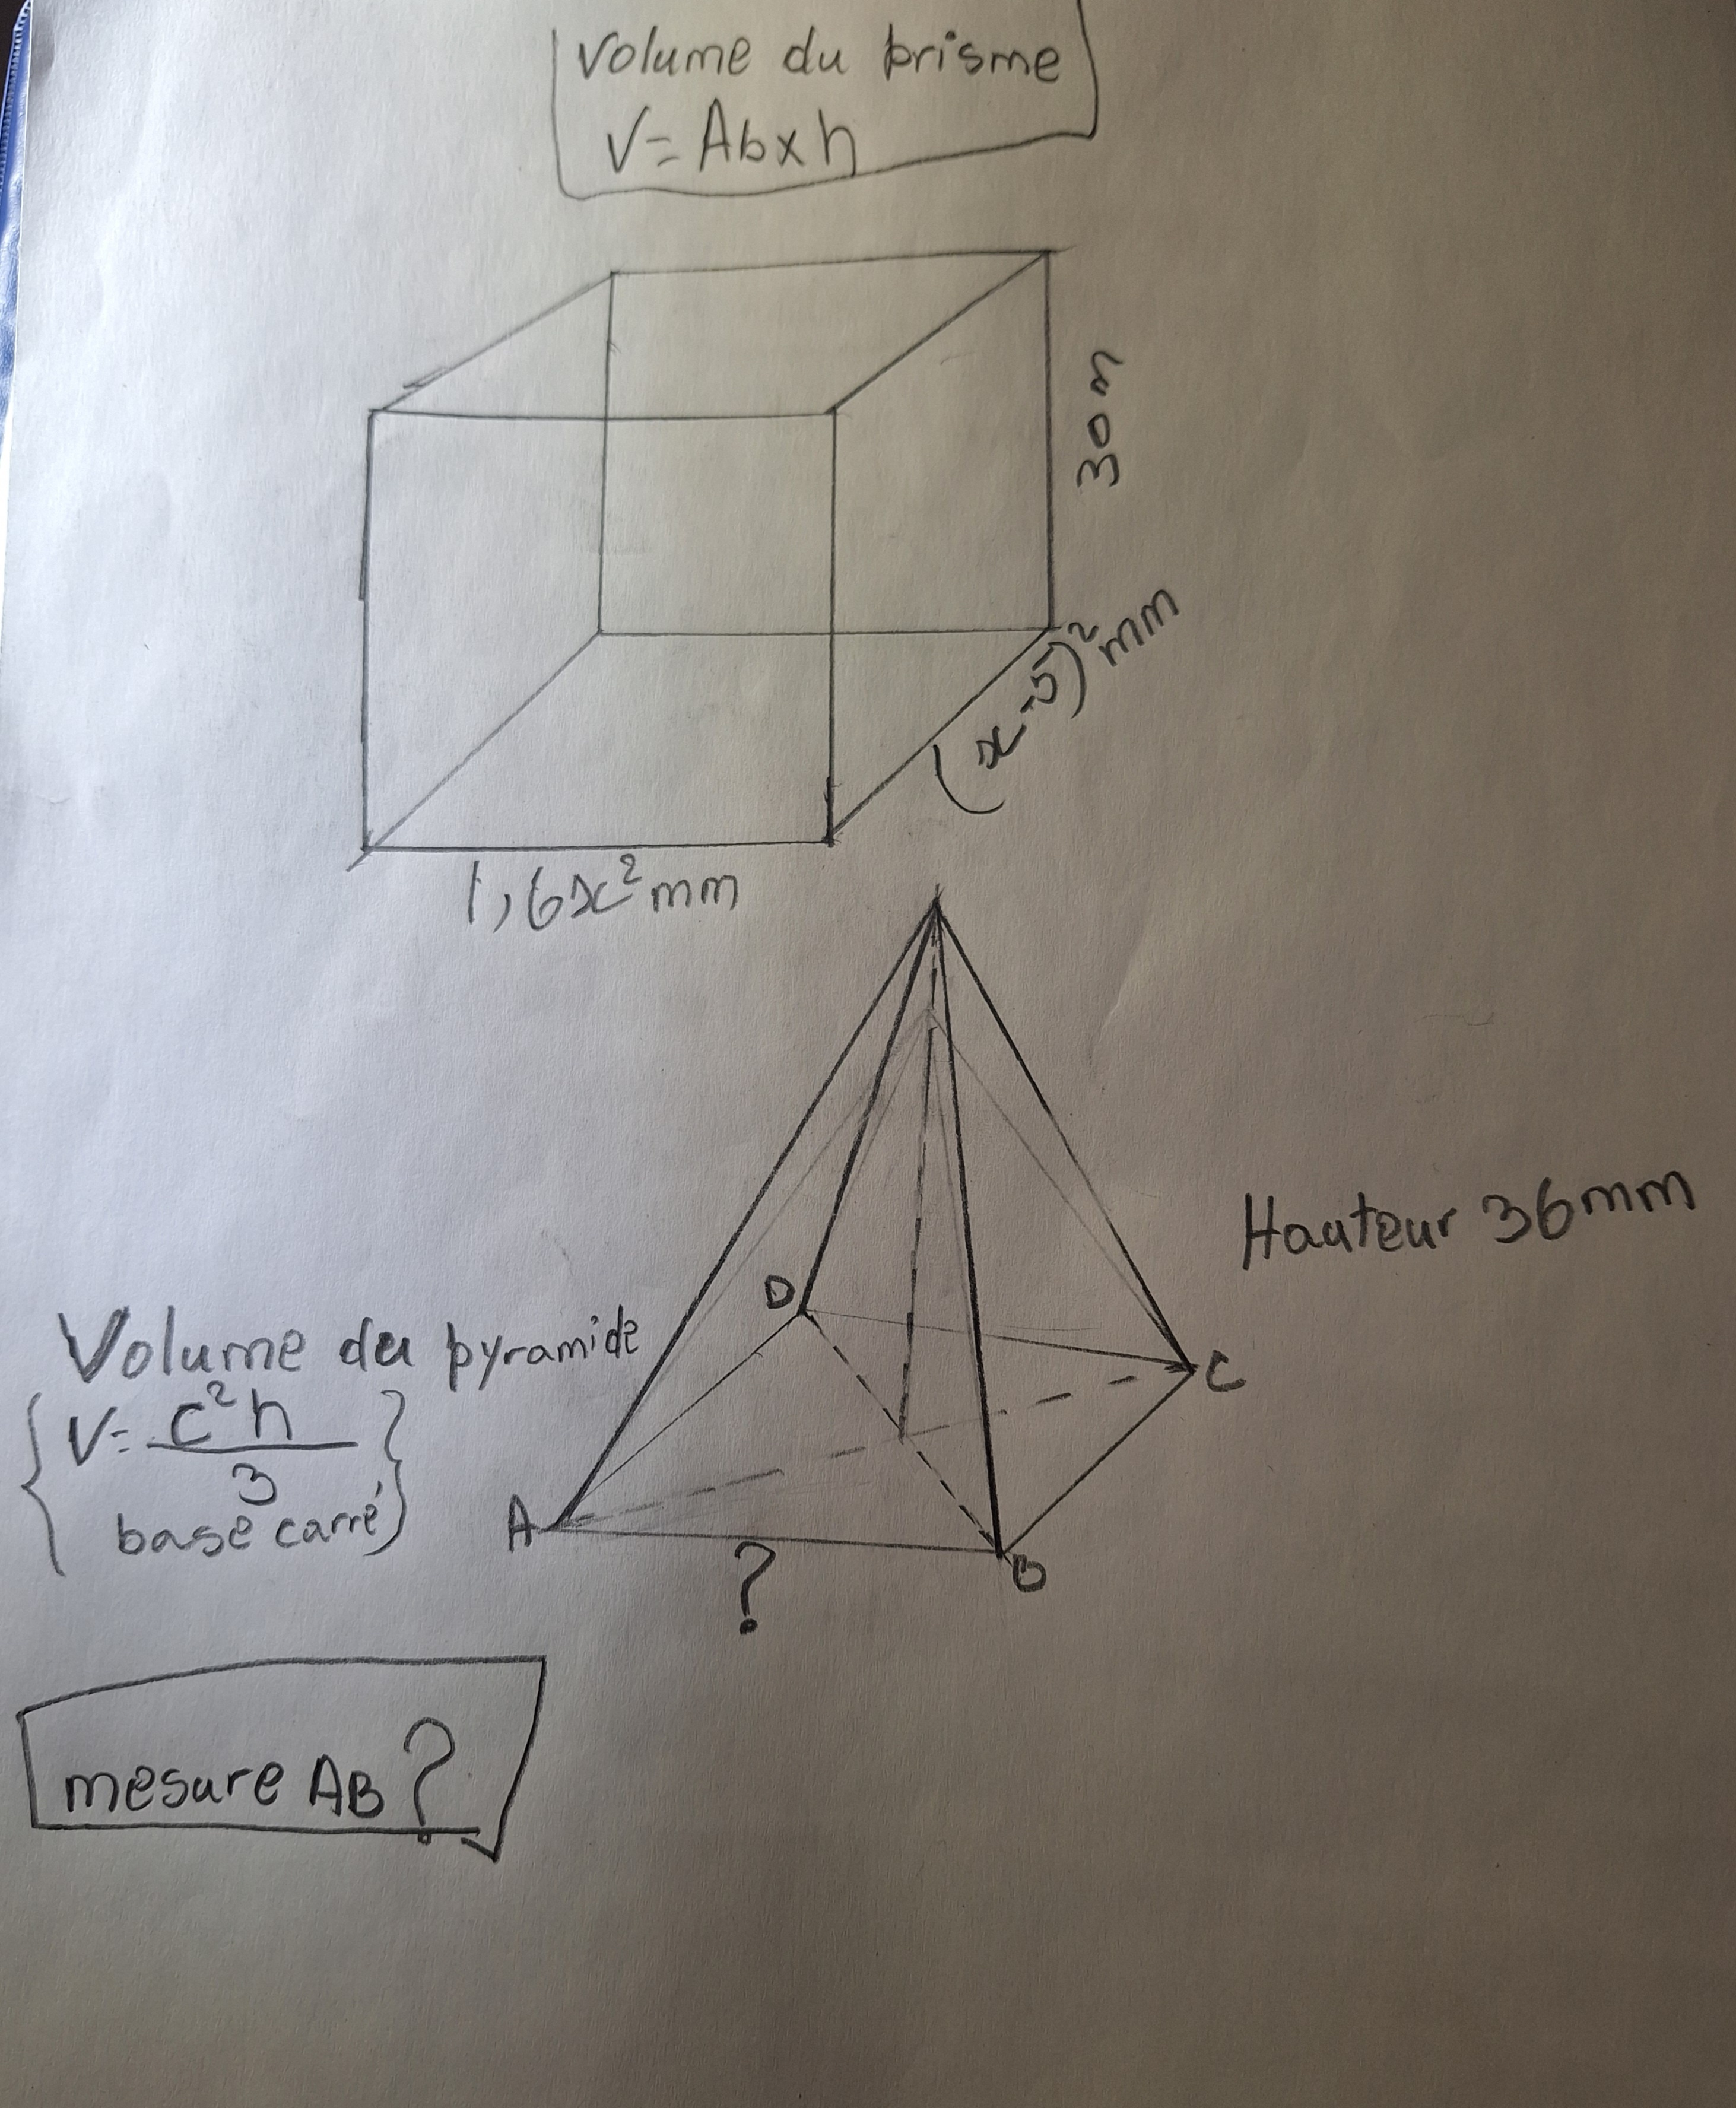 Volume du prisme
V= Abxh
30m
(x-5)²mm
1,6x²mm
Hauteur 36mm
D
C
Volume du pyramide
V= c²h
3
base carré
A
B
?
mesure AB?